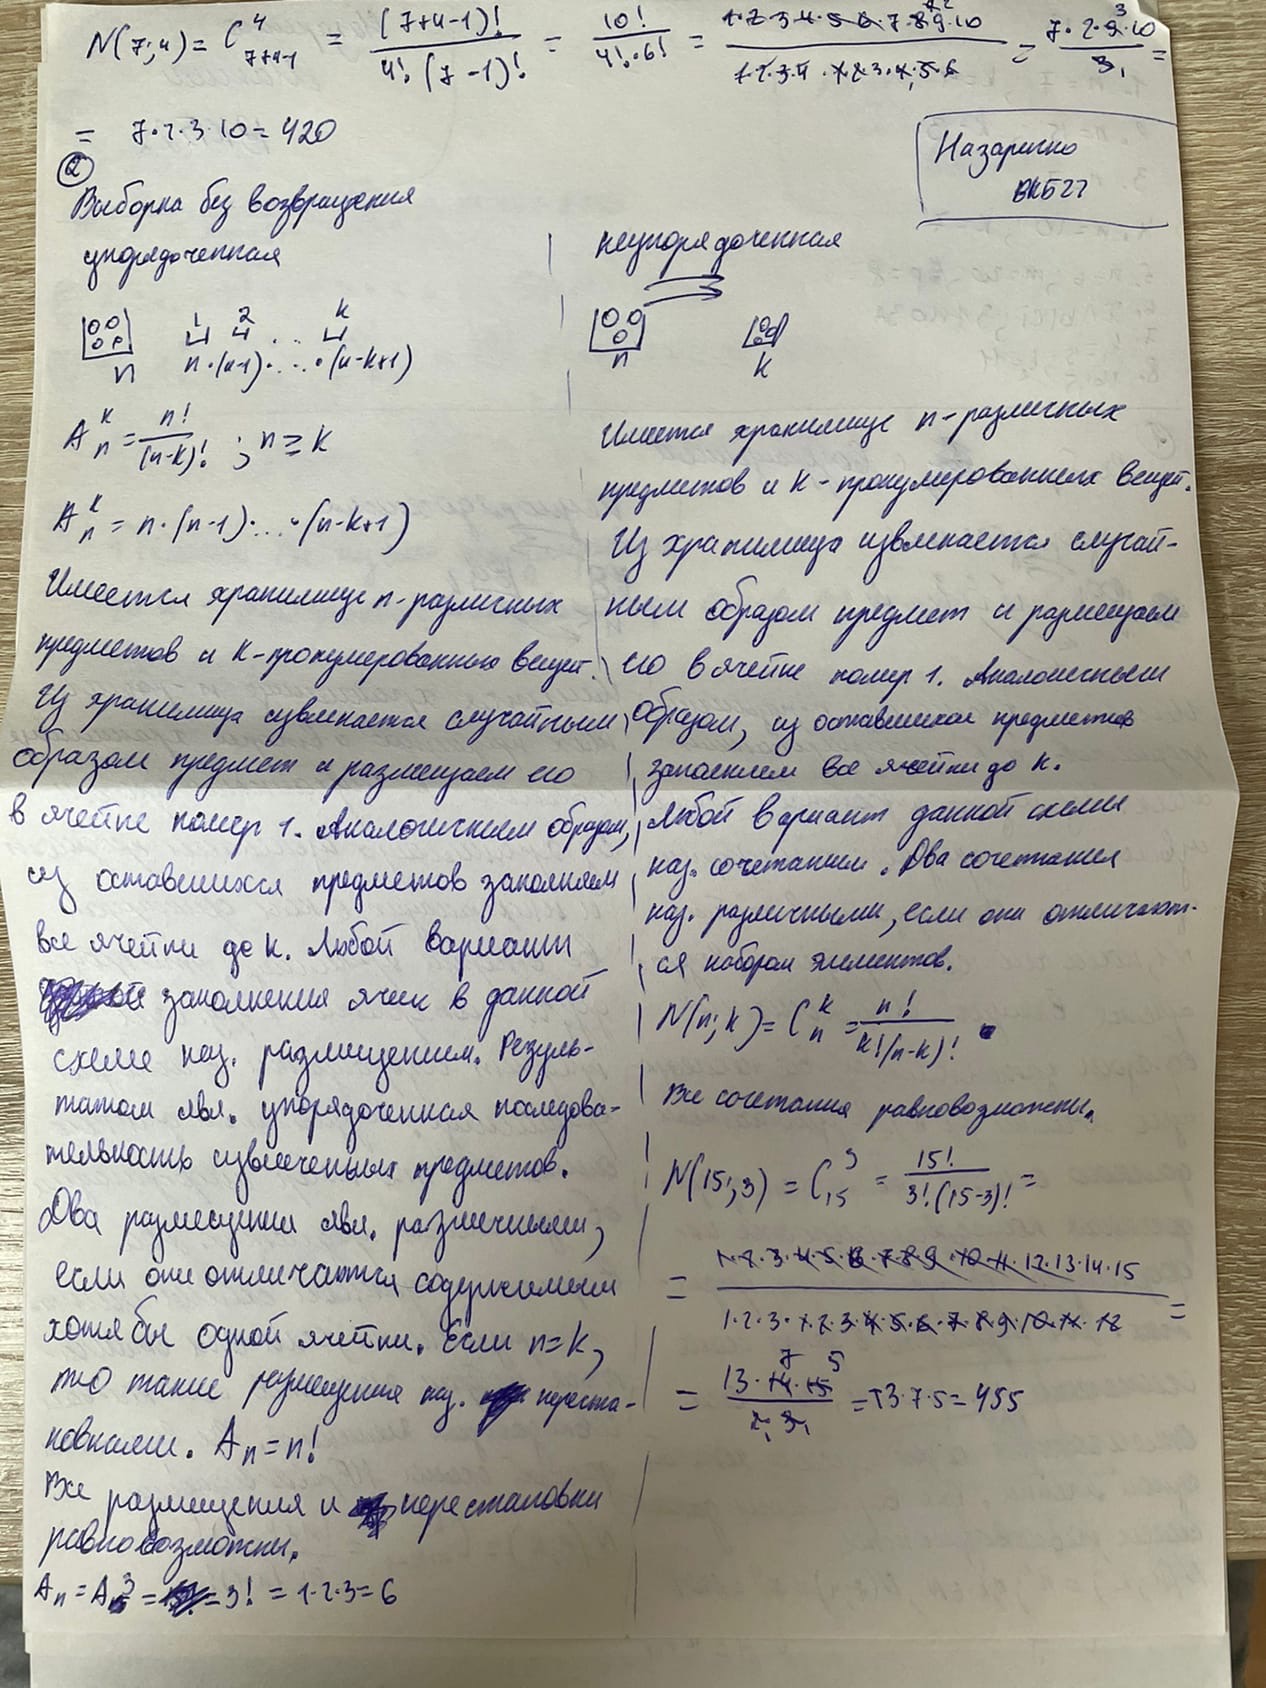 N(7;4) = C⁴₇₊₄₋₁ = (7+4-1)! / 4!·(7-1)! = 10! / 4!·6! = 1·2·3·4·5·6·7·8·9·10 / 1·2·3·4·1·2·3·4·5·6 = 7·2·9·10 / 3 =
= 7·2·3·10 = 420
Назаренко
ВКБ22
②
Выборка без возвращения
упорядоченная
1 2 k
n n·(n-1)·...·(n-k+1)
Aₙᵏ = n! / (n-k)! ; n ≥ k
Aₙᵏ = n·(n-1)·...·(n-k+1)
Имеется хранилище n-различных
предметов и k-пронумерованных вещей.
Из хранилища извлекается случайным
образом предмет и размещаем его
в ячейке номер 1. Аналогичным образом,
из оставшихся предметов заполняем
все ячейки до k. Любой вариант
заполнения ячеек в данной
схеме наз. размещением. Резуль-
татом явл. упорядоченная последова-
тельность извлеченных предметов.
Два размещения явл. различными,
если они отличаются содержимым
хотя бы одной ячейки. Если n=k,
то такие размещения наз. переста-
новками. Aₙ = n!
Все размещения и перестановки
равновозможны.
Aₙ = Aₙ³ = = 3! = 1·2·3 = 6
неупорядоченная
n k
Имеется хранилище n-различных
предметов и k-пронумерованных вещей.
Из хранилища извлекается случай-
ным образом предмет и размещаем
его в ячейке номер 1. Аналогичным
образом, из оставшихся предметов
заполняем все ячейки до k.
Любой вариант данной схемы
наз. сочетанием. Два сочетания
наз. различными, если они отличают-
ся набором элементов.
N(n;k) = Cₙᵏ = n! / k!(n-k)!
Все сочетания равновозможны.
N(15;3) = C₁₅³ = 15! / 3!·(15-3)! =
= 1·2·3·4·5·6·7·8·9·10·11·12·13·14·15 / 1·2·3·1·2·3·4·5·6·7·8·9·10·11·12 =
= 13·14·15 / 2·3 = 13·7·5 = 455